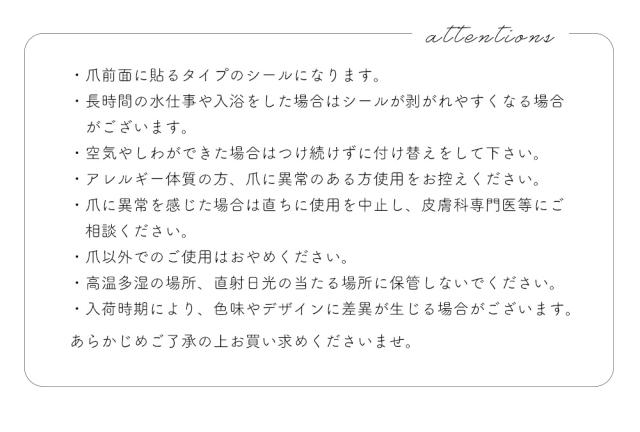 attentions
・爪前面に貼るタイプのシールになります。
・長時間の水仕事や入浴をした場合はシールが剥がれやすくなる場合
がございます。
・空気やしわができた場合はつけ続けずに付け替えをして下さい。
・アレルギー体質の方、爪に異常のある方使用をお控えください。
・爪に異常を感じた場合は直ちに使用を中止し、皮膚科専門医等にご
相談ください。
・爪以外でのご使用はおやめください。
・高温多湿の場所、直射日光の当たる場所に保管しないでください。
・入荷時期により、色味やデザインに差異が生じる場合がございます。
あらかじめご了承の上お買い求めくださいませ。